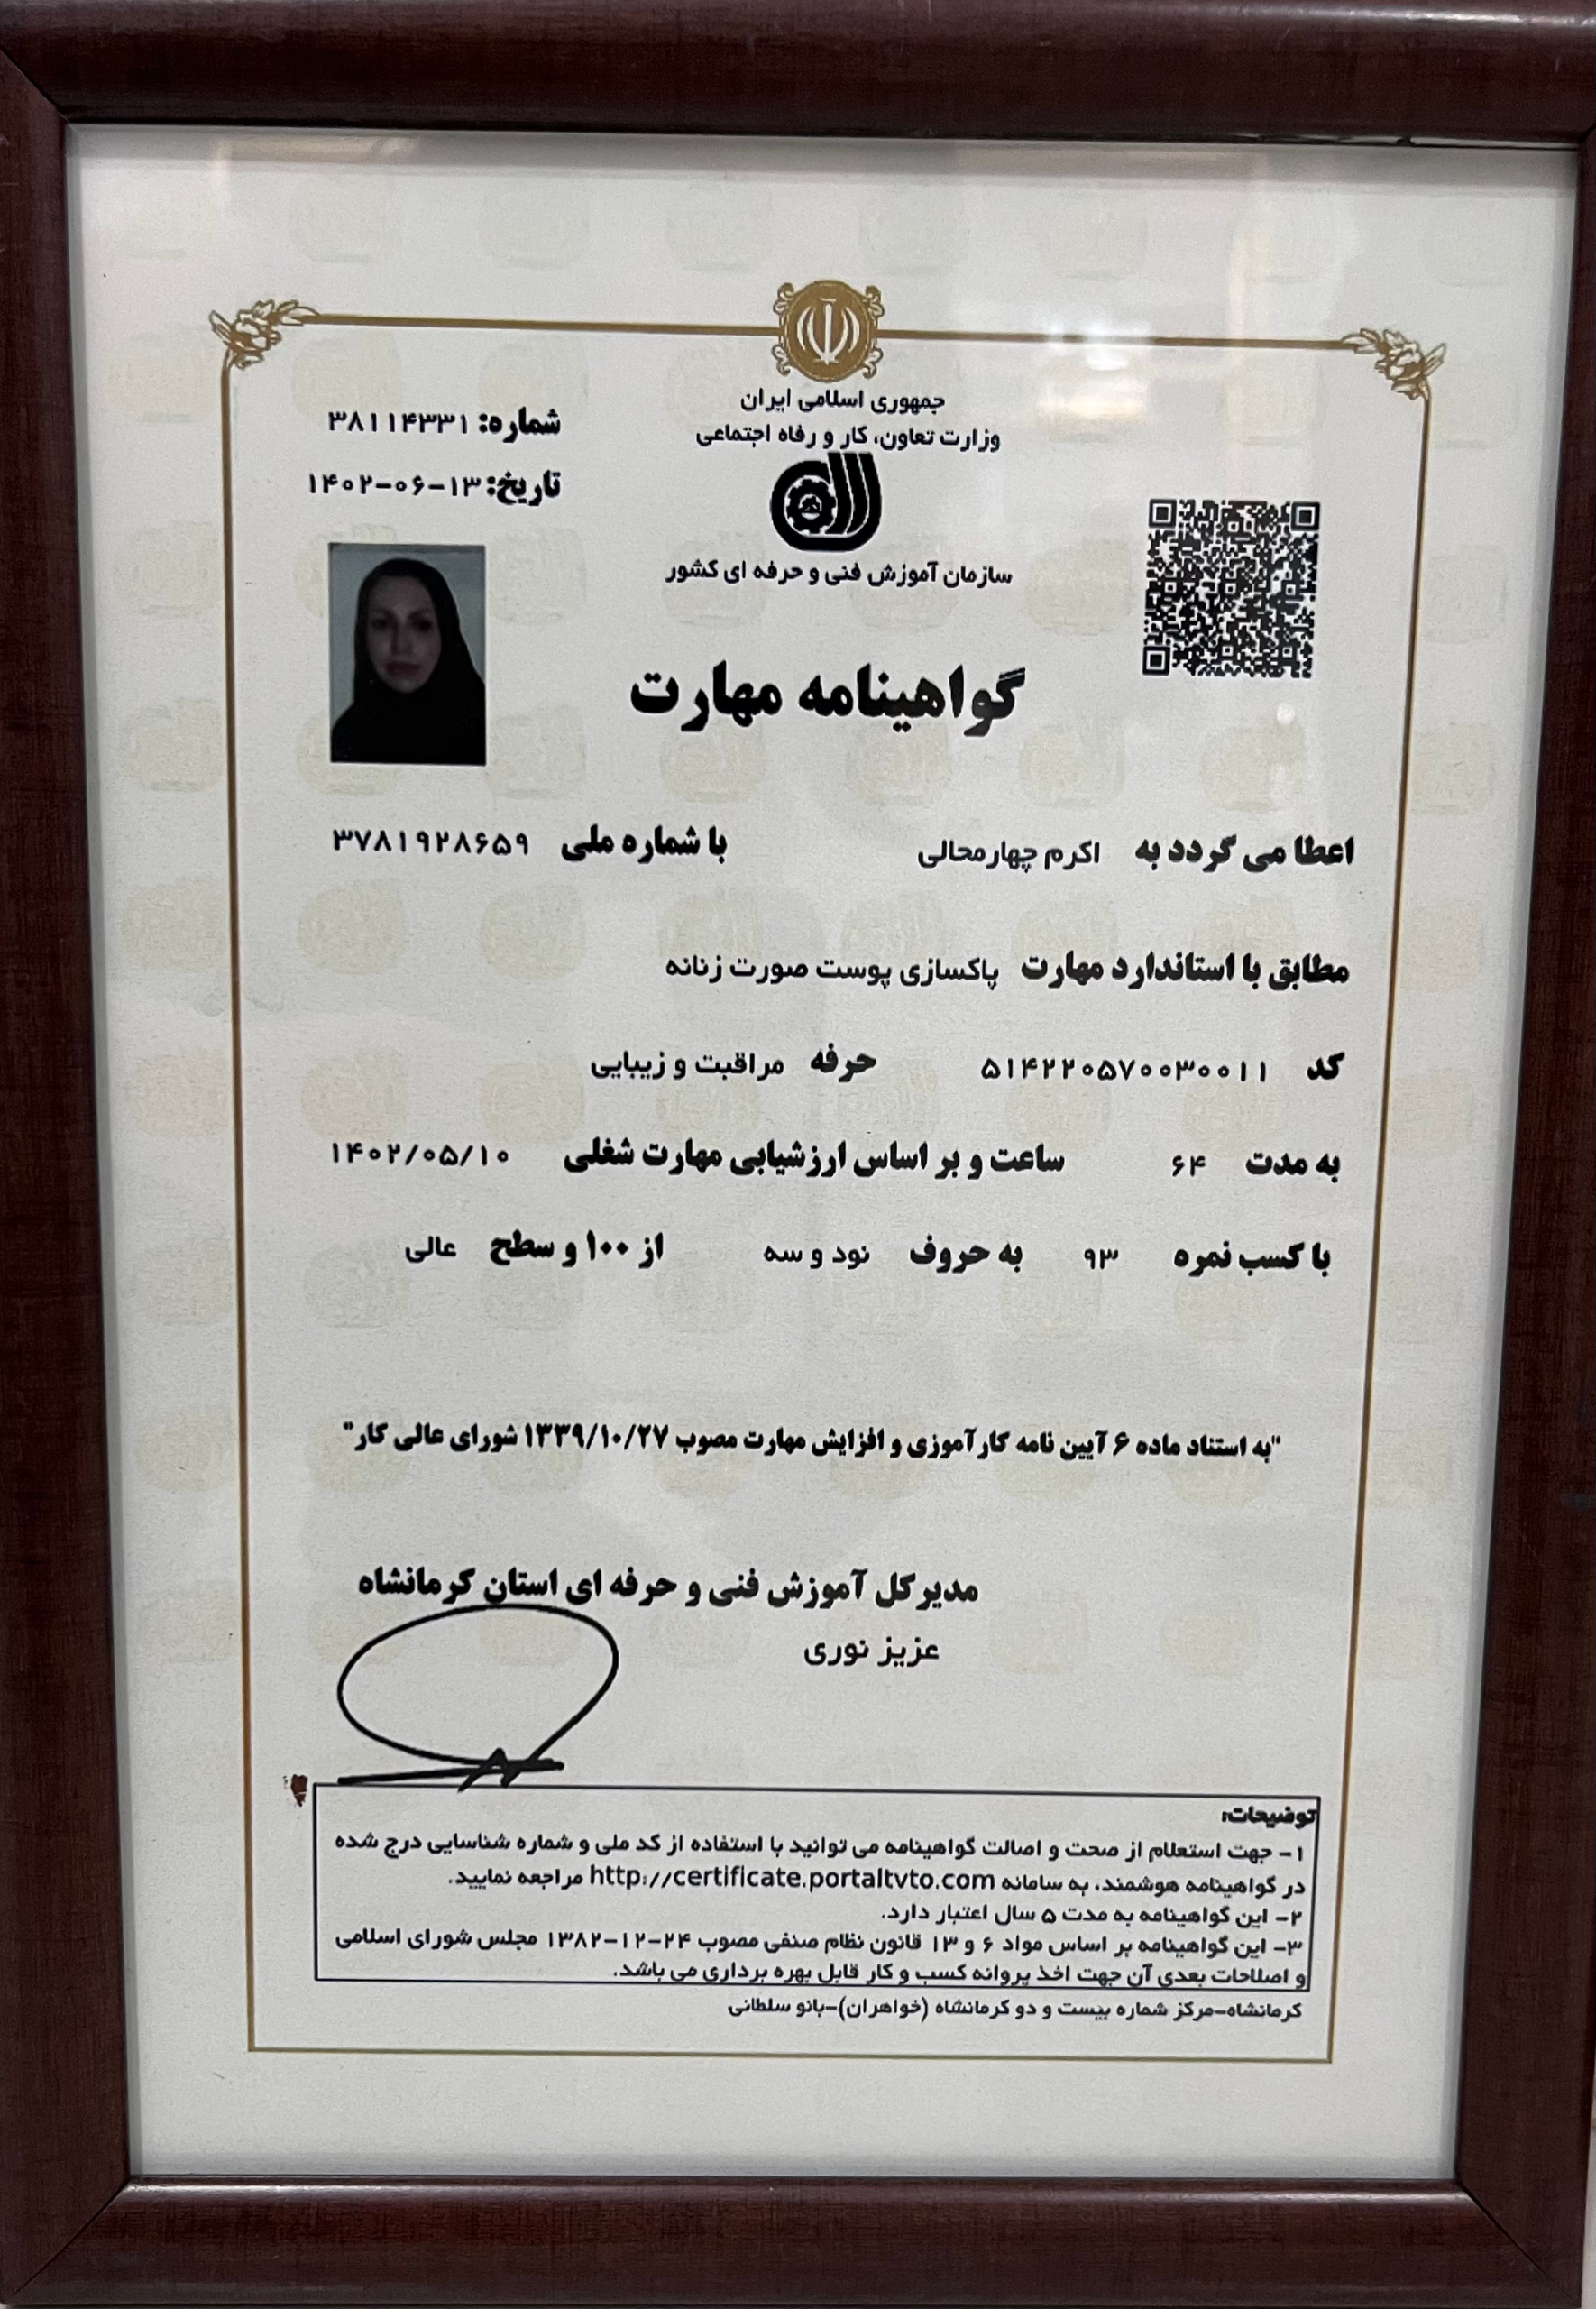 جمهوری اسلامی ایران
وزارت تعاون، کار و رفاه اجتماعی
سازمان آموزش فنی و حرفه ای کشور
شماره: ۳۸۱۱۴۳۳۱
تاریخ: ۱۴۰۲-۰۶-۱۳
گواهینامه مهارت
اعطا می گردد به اکرم چهارمحالی با شماره ملی ۳۷۸۱۹۲۸۶۵۹
مطابق با استاندارد مهارت پاکسازی پوست صورت زنانه
کد ۵۱۴۲۲۰۵۷۰۰۳۰۰۱۱ حرفه مراقبت و زیبایی
به مدت ۶۴ ساعت و بر اساس ارزشیابی مهارت شغلی ۱۴۰۲/۰۵/۱۰
با کسب نمره ۹۳ به حروف نود و سه از ۱۰۰ و سطح عالی
"به استناد ماده ۶ آیین نامه کارآموزی و افزایش مهارت مصوب ۱۳۳۹/۱۰/۲۷ شورای عالی کار"
مدیرکل آموزش فنی و حرفه ای استان کرمانشاه
عزیز نوری
توضیحات:
۱- جهت استعلام از صحت و اصالت گواهینامه می توانید با استفاده از کد ملی و شماره شناسایی درج شده
در گواهینامه هوشمند، به سامانه http://certificate.portaltvto.com مراجعه نمایید.
۲- این گواهینامه به مدت ۵ سال اعتبار دارد.
۳- این گواهینامه بر اساس مواد ۶ و ۱۳ قانون نظام صنفی مصوب ۲۴-۱۲-۱۳۸۲ مجلس شورای اسلامی
و اصلاحات بعدی آن جهت اخذ پروانه کسب و کار قابل بهره برداری می باشد.
کرمانشاه-مرکز شماره بیست و دو کرمانشاه (خواهران)-بانو سلطانی